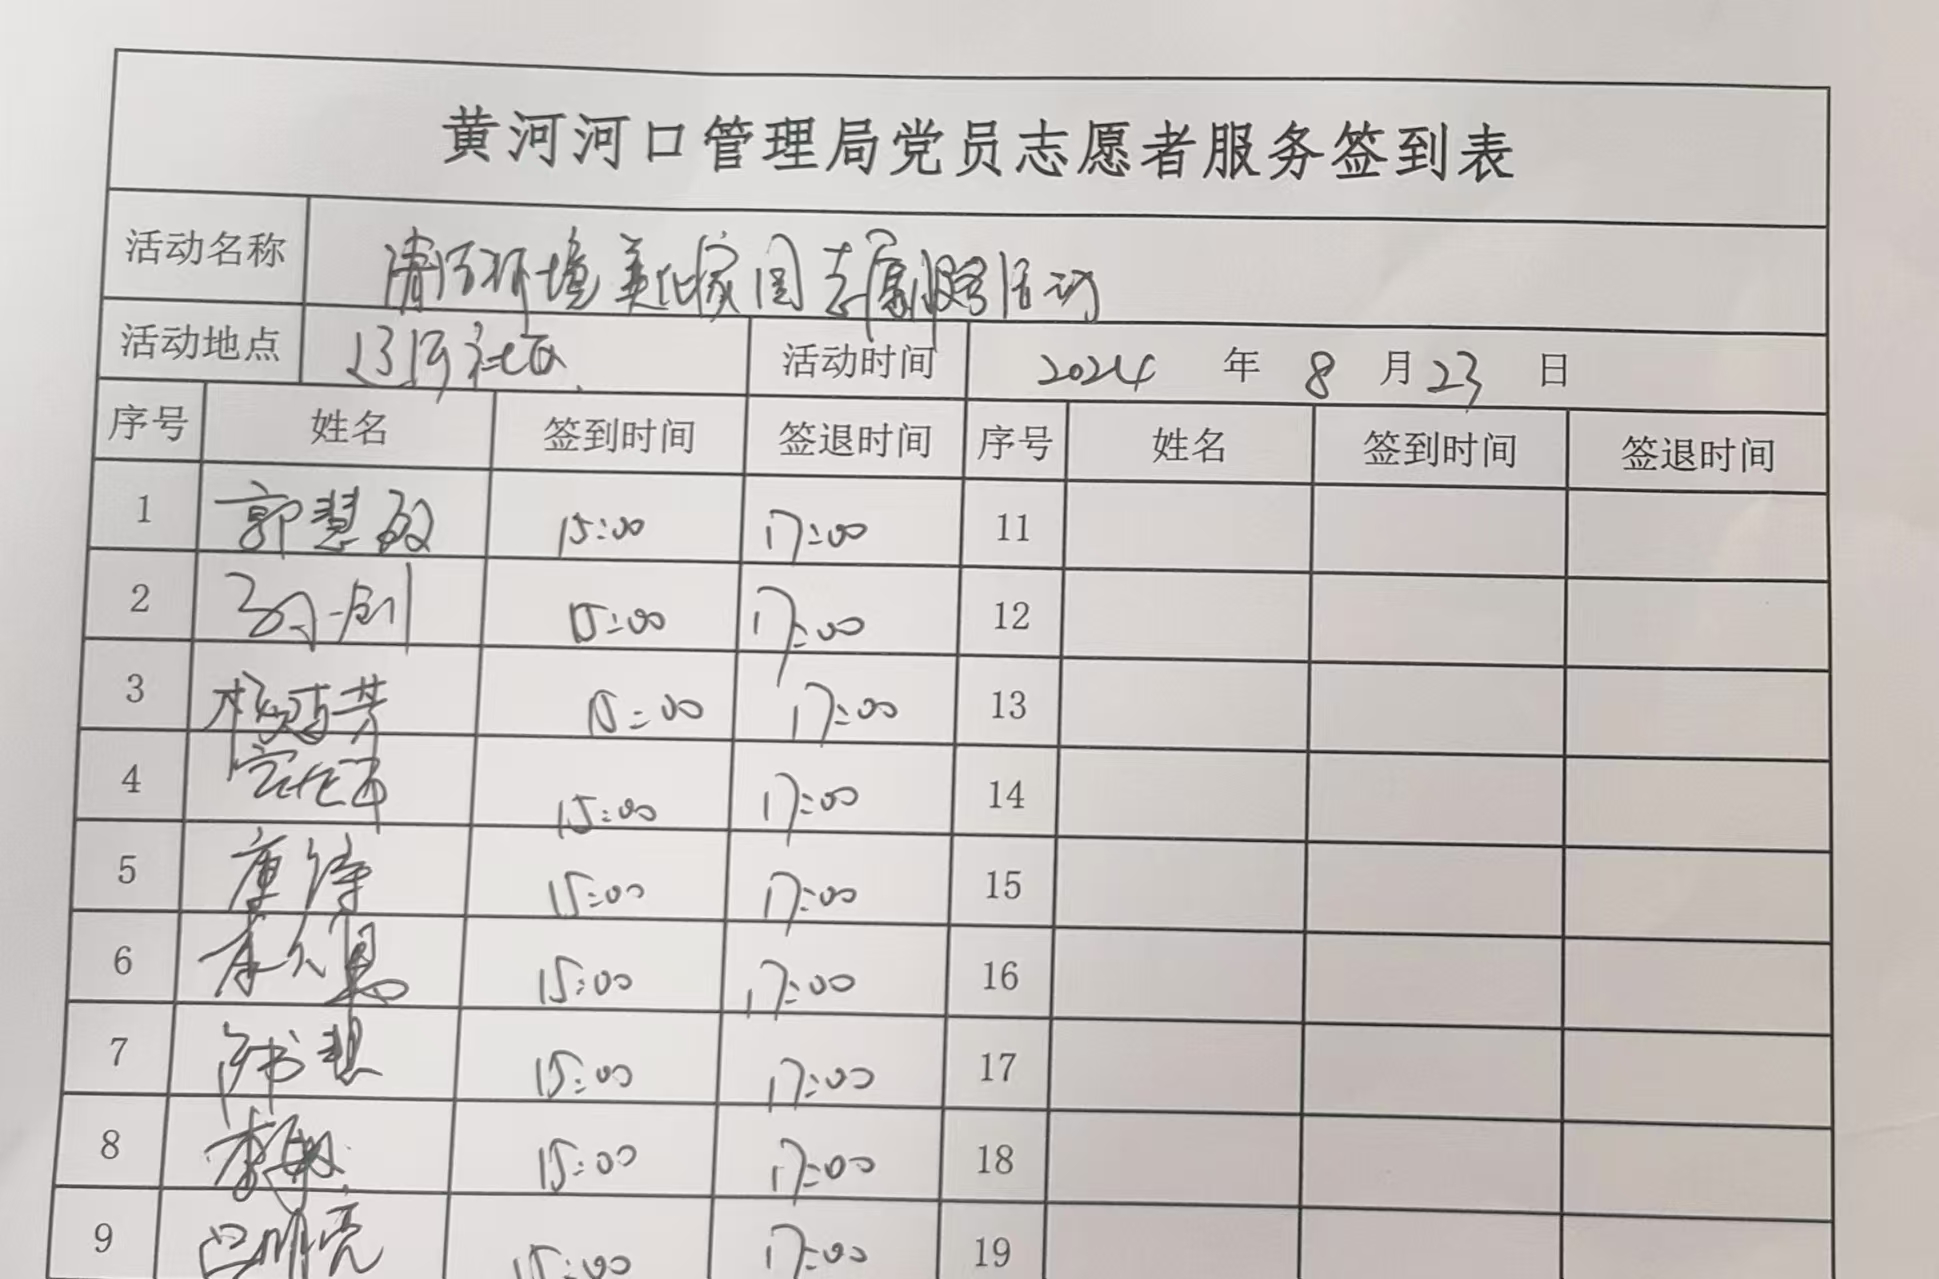 黄河河口管理局党员志愿者服务签到表
活动名称 清洁环境美化家园志愿服务活动
活动地点 辽河社区 活动时间 2024 年 8 月 23 日
序号 姓名 签到时间 签退时间 序号 姓名 签到时间 签退时间
1 郭慧敏 15:00 17:00 11
2 15:00 17:00 12
3 15:00 17:00 13
4 15:00 17:00 14
5 15:00 17:00 15
6 15:00 17:00 16
7 15:00 17:00 17
8 李敏 15:00 17:00 18
9 吕明亮 15:00 17:00 19